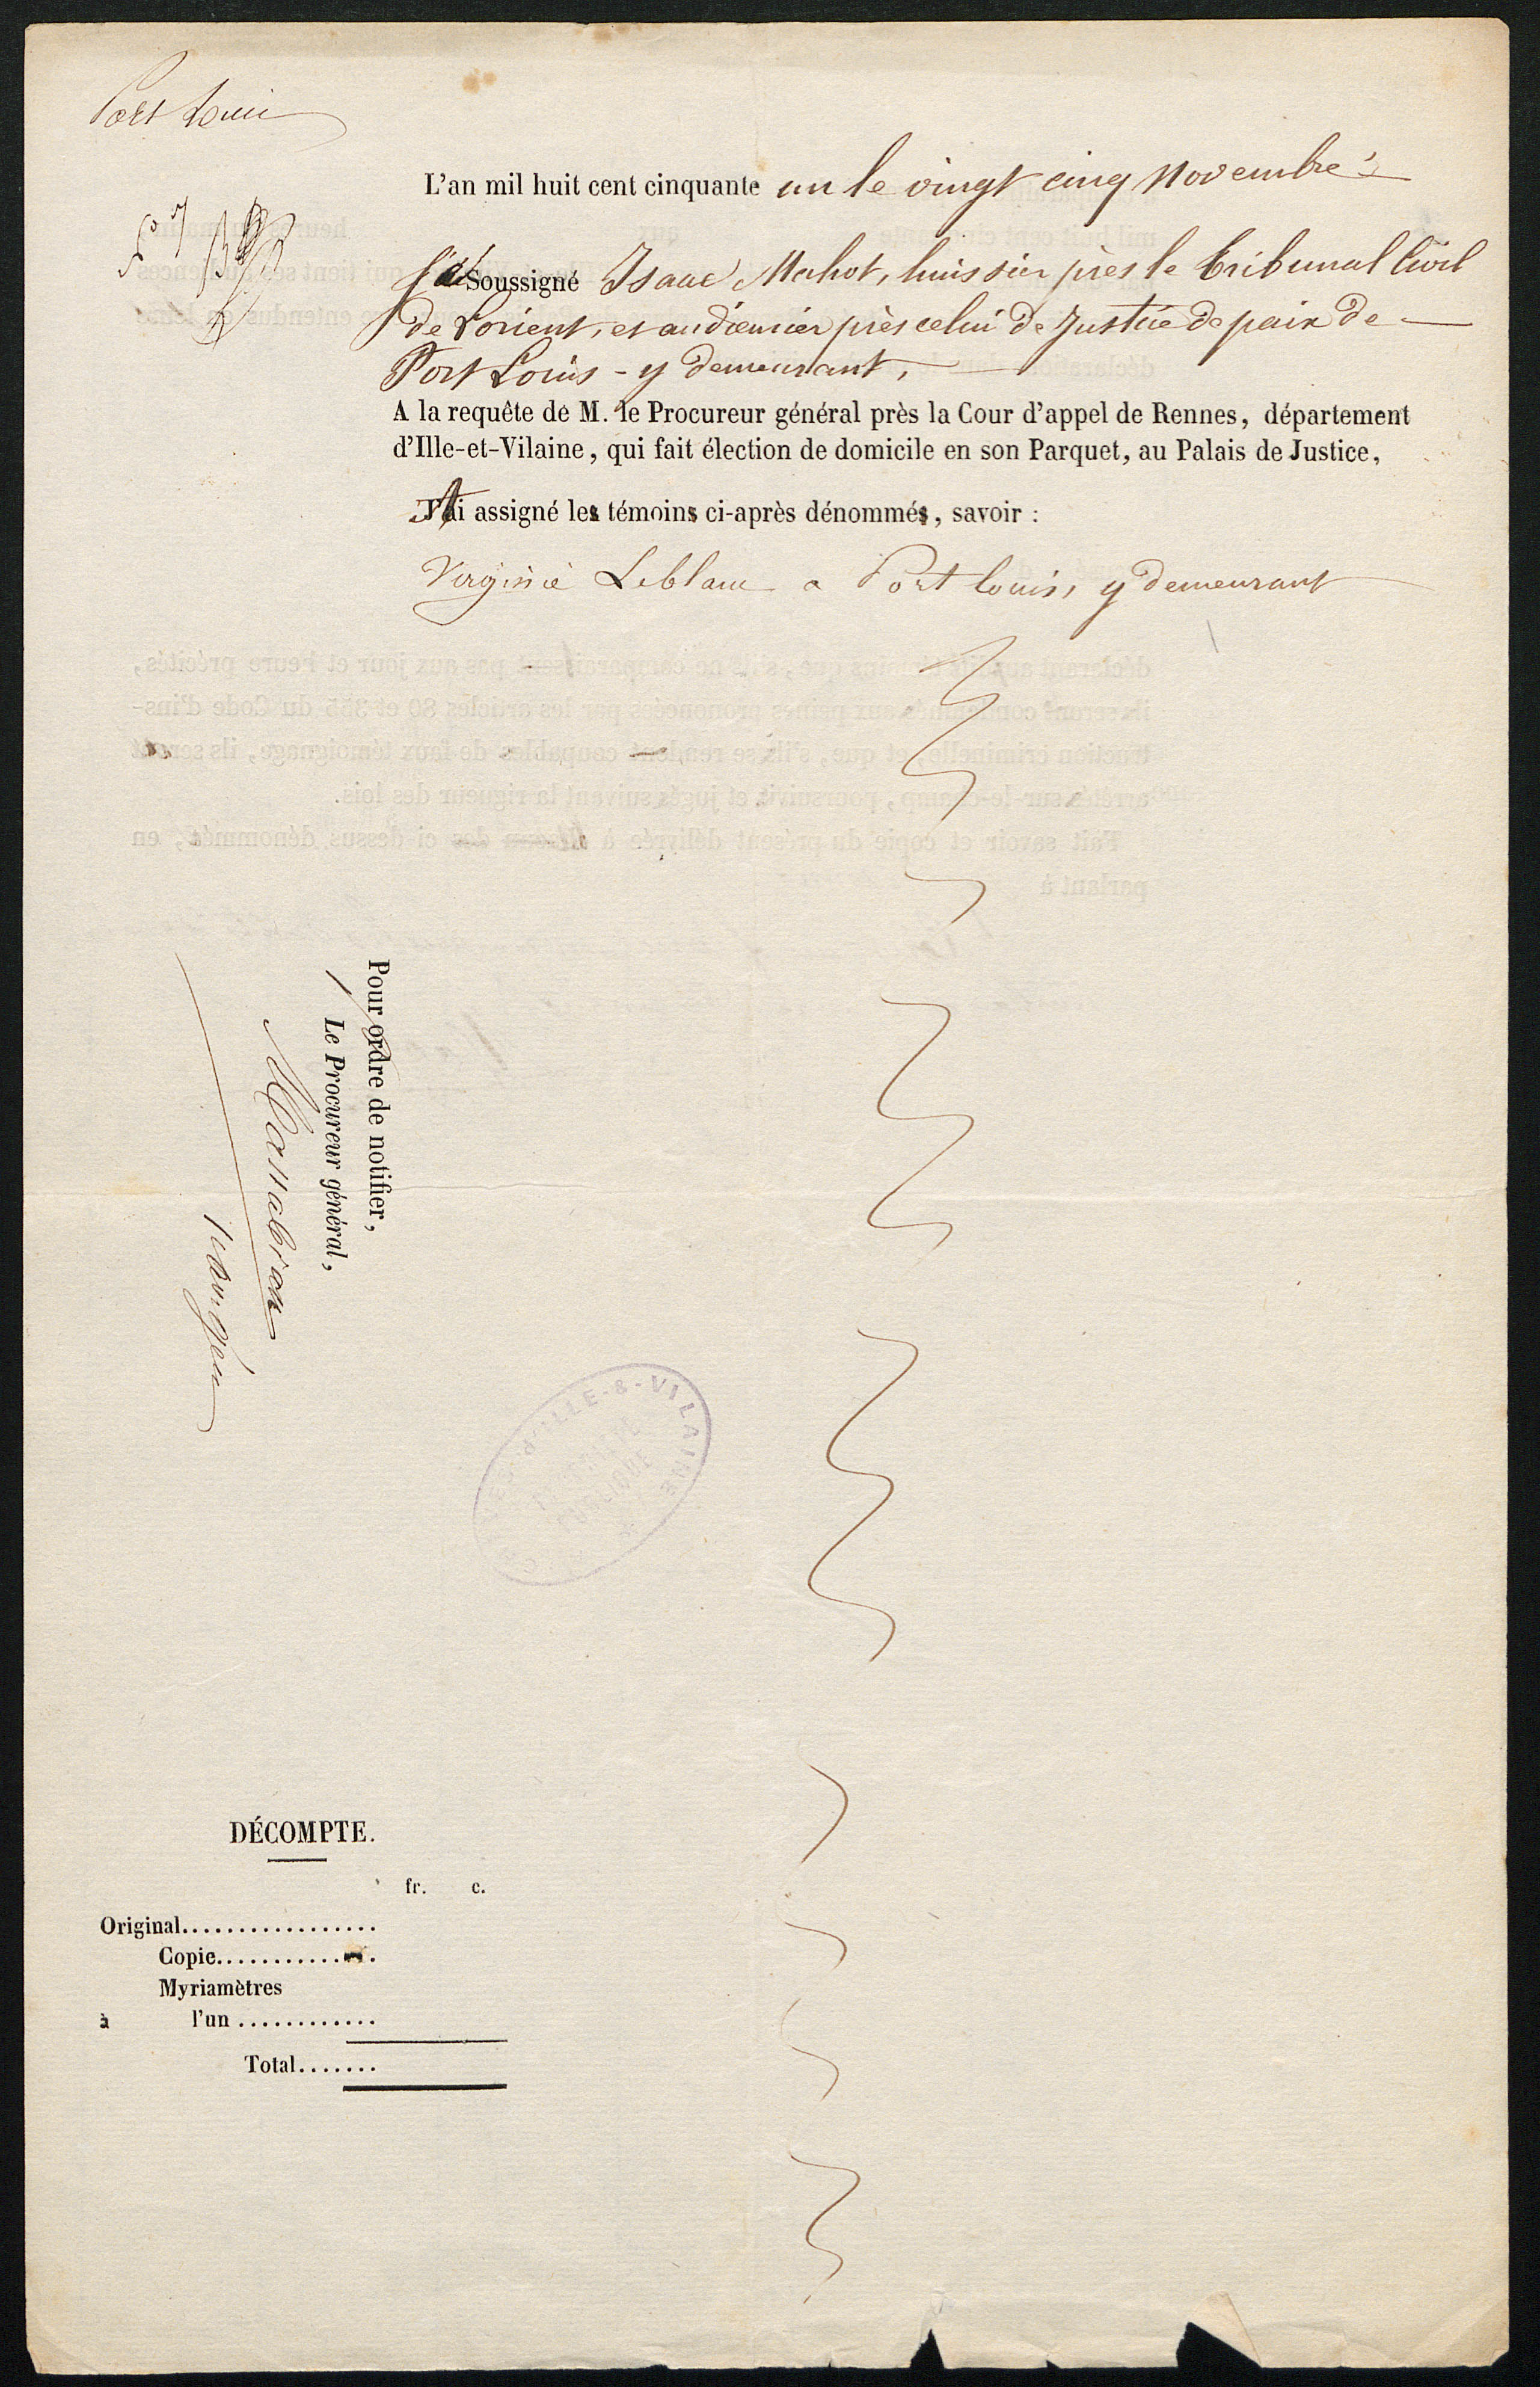 Port Louis
L'an mil huit cent cinquante un le vingt cinq Novembre
Je Soussigné Isaac Mahot, huissier près le tribunal Civil
de Lorient, et audiencier près celui de Justice de paix de
Port Louis - y demeurant,
A la requête de M. le Procureur général près la Cour d'appel de Rennes, département
d'Ille-et-Vilaine, qui fait élection de domicile en son Parquet, au Palais de Justice,
J'ai assigné les témoins ci-après dénommés, savoir :
Virginie Leblanc a Port louis, y demeurant
Pour ordre de notifier,
Le Procureur général,
Massabiau
D'ILLE-&-VILAINE
DÉCOMPTE.
fr. c.
Original.................
Copie..............
Myriamètres
à l'un ............
Total.......